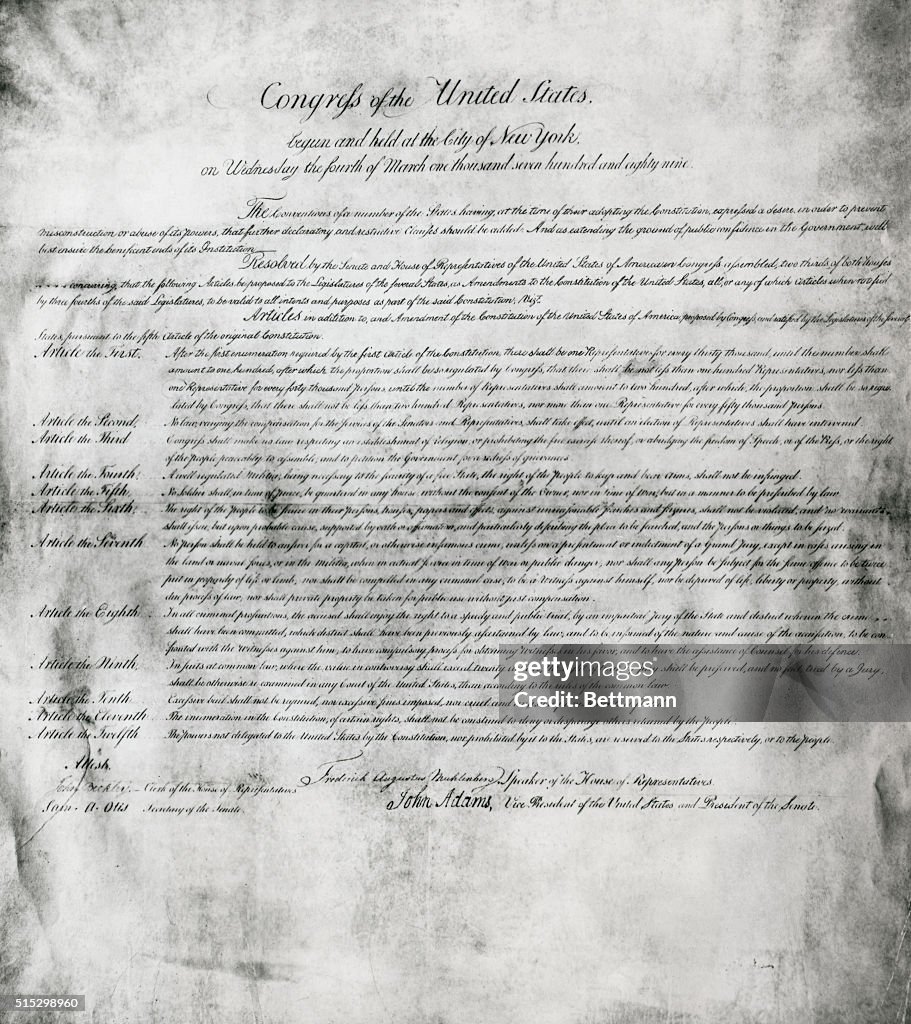 Congress of the United States,
begun and held at the City of New York,
on Wednesday the fourth of March one thousand seven hundred and eighty nine.
The Conventions of a number of the States having, at the time of their adopting the Constitution, expressed a desire, in order to prevent
misconstruction or abuse of its powers, that further declaratory and restrictive Clauses should be added: And as extending the ground of public confidence in the Government, will
best ensure the beneficent ends of its Institution
Resolved by the Senate and House of Representatives of the United States of America in Congress assembled, two thirds of both Houses
concurring, that the following Articles be proposed to the Legislatures of the several States, as Amendments to the Constitution of the United States, all, or any of which Articles, when ratified
by three fourths of the said Legislatures, to be valid to all intents and purposes, as part of the said Constitution; viz.
Articles in addition to, and Amendment of the Constitution of the United States of America, proposed by Congress, and ratified by the Legislatures of the several
States, pursuant to the fifth Article of the original Constitution.
Article the First. After the first enumeration required by the first Article of the Constitution, there shall be one Representative for every thirty thousand, until the number shall
amount to one hundred, after which, the proportion shall be so regulated by Congress, that there shall be not less than one hundred Representatives, nor less than
one Representative for every forty thousand Persons, until the number of Representatives shall amount to two hundred, after which, the proportion shall be so regu-
lated by Congress, that there shall not be less than two hundred Representatives, nor more than one Representative for every fifty thousand Persons.
Article the Second. No law, varying the compensation for the services of the Senators and Representatives, shall take effect, until an election of Representatives shall have intervened.
Article the Third. Congress shall make no law respecting an establishment of religion, or prohibiting the free exercise thereof, or abridging the freedom of Speech, or of the Press, or the right
of the people peaceably to assemble, and to petition the Government for a redress of grievances.
Article the Fourth. A well regulated Militia, being necessary to the security of a free State, the right of the People to keep and bear Arms, shall not be infringed.
Article the Fifth. No Soldier shall, in time of Peace, be quartered in any house, without the consent of the Owner, nor in time of war, but in a manner to be prescribed by law.
Article the Sixth. The right of the People to be secure in their Persons, houses, papers and effects, against unreasonable searches and seizures, shall not be violated, and no warrants
shall issue, but upon probable cause, supported by oath or affirmation, and particularly describing the place to be searched, and the Persons or things to be seized.
Article the Seventh. No Person shall be held to answer for a capital, or otherwise infamous crime, unless on a presentment or indictment of a Grand Jury, except in cases arising in
the land or naval forces, or in the Militia, when in actual service in time of War or public danger; nor shall any Person be subject for the same offence to be twice
put in jeopardy of life or limb, nor shall be compelled in any criminal case, to be a Witness against himself, nor be deprived of life, liberty or property, without
due process of law; nor shall private property be taken for public use without just compensation.
Article the Eighth. In all criminal prosecutions, the accused shall enjoy the right to a speedy and public trial, by an impartial Jury of the State and district wherein the crime
shall have been committed, which district shall have been previously ascertained by law, and to be informed of the nature and cause of the accusation; to be con-
fronted with the Witnesses against him; to have compulsory process for obtaining Witnesses in his favor, and to have the assistance of Counsel for his defence.
Article the Ninth. In suits at common law, where the value in controversy shall exceed twenty shall be preserved, and no fact, tried by a Jury
shall be otherwise re-examined in any Court of the United States, than according to the rules of the common law.
Article the Tenth. Excessive bail shall not be required, nor excessive fines imposed, nor cruel and
Article the Eleventh. The enumeration in the Constitution, of certain rights, shall not be construed to deny or disparage others retained by the People.
Article the Twelfth. The Powers not delegated to the United States by the Constitution, nor prohibited by it to the States, are reserved to the States respectively, or to the People.
Attest,
Frederick Augustus Muhlenberg Speaker of the House of Representatives.
John Beckley, Clerk of the House of Representatives
John Adams, Vice President of the United States and President of the Senate.
Sam. A. Otis Secretary of the Senate
gettyimages
Credit: Bettmann
515298960